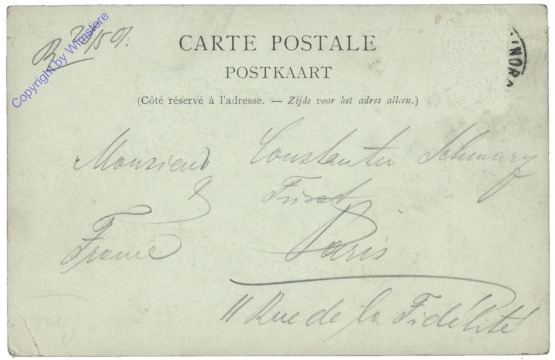 R 28/5 01.
Copyright by Whitstore
CARTE POSTALE
POSTKAART
(Côté réservé à l'adresse. — Zijde voor het adres alleen.)
Monsieur Constantin
France Paris
11 Rue de la Fidélité